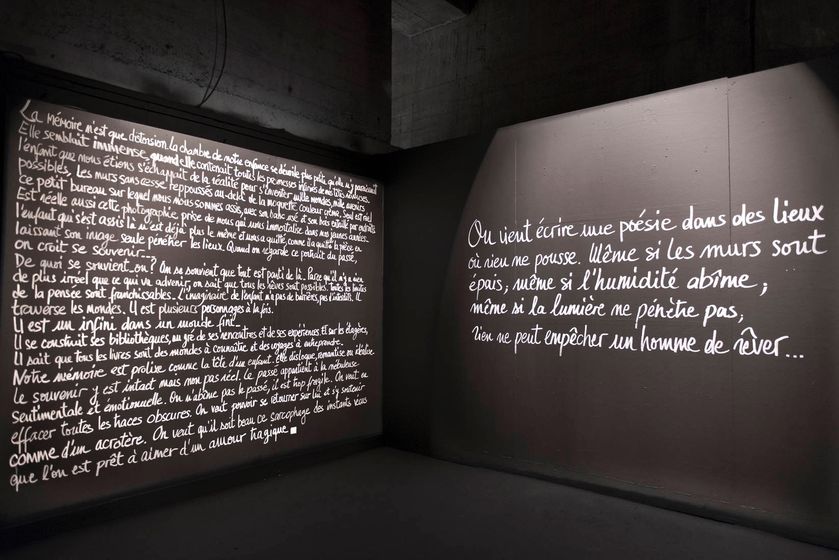 La mémoire n'est que distorsion. La chambre de notre enfance se dévoile plus petite qu'elle n'y paraissait
Elle semblait immense, quand elle contenait toutes les promesses infinies de nos têtes
l'enfant que nous étions s'échappait de la réalité pour s'inventer mille mondes, mille avenirs
possibles, les murs sans cesse repoussés au-delà de la moquette couleur crème. Seul est réel
ce petit bureau sur lequel nous nous sommes assis, avec son et son bois entaillé par endroits
Est réelle aussi cette photographie, prise de nous qui nous immortalise dans nos jeunes années
l'enfant qui s'est assis là n'est déjà plus le même et nous a quitté, comme il a quitté la pièce en
laissant son image seule pénétrer les lieux. Quand on regarde ce portrait du passé,
on croit se souvenir...
De quoi se souvient-on? On se souvient que tout est parti de là. Parce qu'il n'y a rien
de plus irréel que ce qui va advenir, on sait que tous les rêves sont possibles. Toutes les limites
de la pensée sont franchissables. L'imaginaire de l'enfant n'a pas de barrières, pas d'interdits. Il
traverse les mondes. Il est plusieurs personnages à la fois.
Il est un infini dans un monde fini...
Il se construit ses bibliothèques, au gré de ses rencontres et de ses expériences. Et sur les étagères,
il sait que tous les livres sont des mondes à connaître et des voyages à entreprendre.
Notre mémoire est prolixe comme la tête d'un enfant. Elle dialogue, romantise ou idéalise
le souvenir y est intact mais non pas réel. Le passé appartient à la nébuleuse
sentimentale et émotionelle. On n'abîme pas le passé, il est trop fragile. On veut en
effacer toutes les traces obscures. On veut pouvoir se retourner sur lui et s'y soutenir
comme d'un acrotère. On veut qu'il soit beau ce sarcophage des instants vécus
que l'on est prêt à aimer d'un amour tragique.
On vient écrire une poésie dans des lieux
où rien ne pousse. Même si les murs sont
épais; même si l'humidité abîme;
même si la lumière ne pénètre pas;
rien ne peut empêcher un homme de rêver...